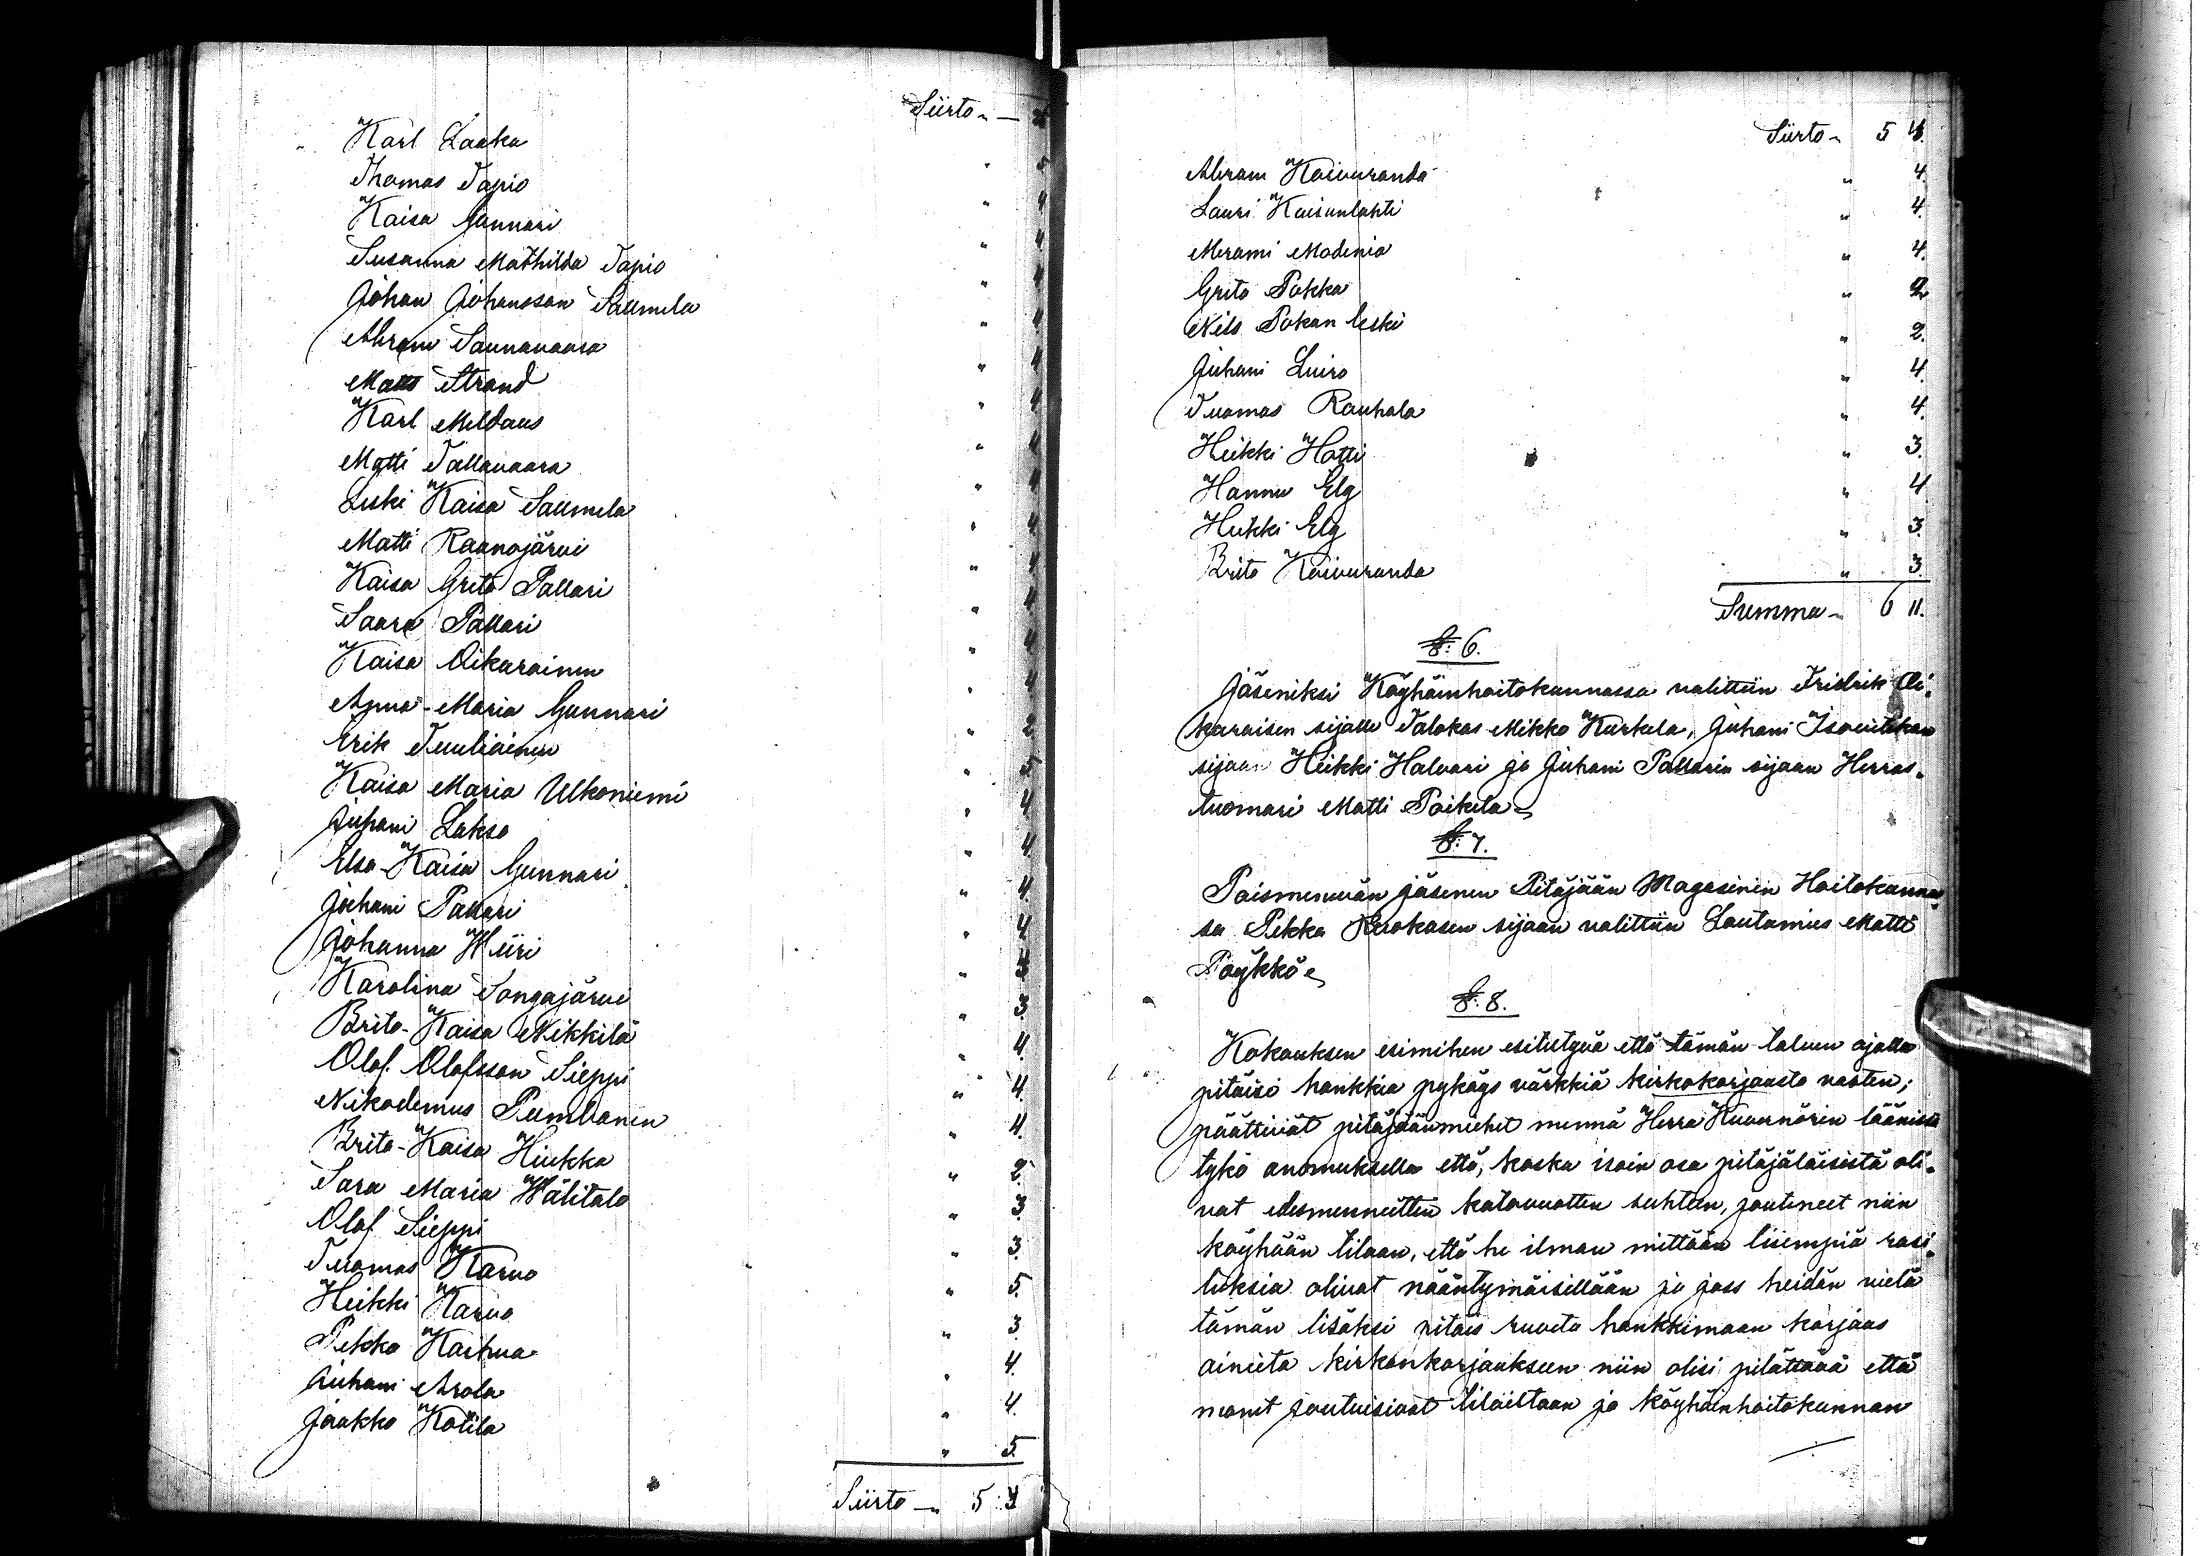 Siirto „ —
Karl Laaka „ 5
Thomas Tapio „ 4
Kaisa Gunnari „ 4
Susanna Mathilda Tapio „ 4
Johan Johansson Saumela „ 4
Abram Saunavaara „ 4
Matts Strand „ 4
Karl Meldaus
Matti Tallavaara „ 4
Leski Kaisa Saumela „ 4
Matti Raanojärvi „ 4
Kaisa Greta Pallari „
Saara Pallari „ 4
Kaisa Oikarainen „ 4
Anna-Maria Gunnari „ 2
Erik Tuuliainen „ 5
Kaisa Maria Ulkoniemi „ 4
Juhani Lakso „ 4.
Elsa-Kaisa Gunnari „ 4.
Juhani Pallari „ 4
Johanna Wiiri „
Karolina Songajärvi „ 3.
Brita-Kaisa Nikkilä „ 4.
Olof Olofsson Sieppi „ 4.
Nikodemus Pumbanen „ 4.
Brita-Kaisa Hiukka „ 2.
Sara Maria Wälitalo „ 3.
Olof Sieppi „ 3.
Tuomas Karvo „ 5.
Heikki Karvo „ 3
Pekka Karhua „ 4.
Juhani Arola „ 4.
Jaakko Kotila „ 5.
Siirto — 5
Siirto „ 5
Abram Koivuranda „ 4.
Lauri Kaisanlahti „ 4.
Merami Modenia „ 4.
Greta Pokka „ 2
Nils Pokan leski „ 2.
Juhani Luiro „ 4.
Tuomas Rauhala „ 4.
Heikki Hatti „ 3.
Hannu Elg „ 4
Heikki Elg „ 3.
Brita Koivuranda „ 3.
Summa „ 6 11.
§: 6.
Jäseniksi Köyhäinhoitokunnassa valittiin Fridrik Oi-
karaisen sijalle Talokas Mikko Kurkela, Juhani Isoviitikan
sijaan Heikki Halvari ja Juhani Pallarin sijaan Herras-
tuomari Matti Poikela
§: 7.
Poismenevän jäsenen Pitäjään Magasinin Hoitokunnas-
sa Pekka Ruokasen sijaan valittiin Lautamies Matti
Pöykkö
§: 8.
Kokouksen esimihen esitettyä että tämän talven ajalla
pitäisi hankkia pykäys värkkiä kirkokorjausta vasten;
päättivät pitäjäänmiehet mennä Herra Kuvernörin läänissä
tykö anomuksella että, koska isoin osa pitäjäläisistä oli-
vat edesmenneitten katovuotten suhteen, joutuneet niin
köyhään tilaan, että he ilman mittään liiempiä rasi-
tuksia olivat nääntymäisillään ja joss heidän vielä
tämän lisäksi pitäis ruveta hankkimaan korjaus
aineita kirkonkorjaukseen niin olisi pelättävä että
monet joutuisivat tiloiltaan ja köyhäinhoitokunnan